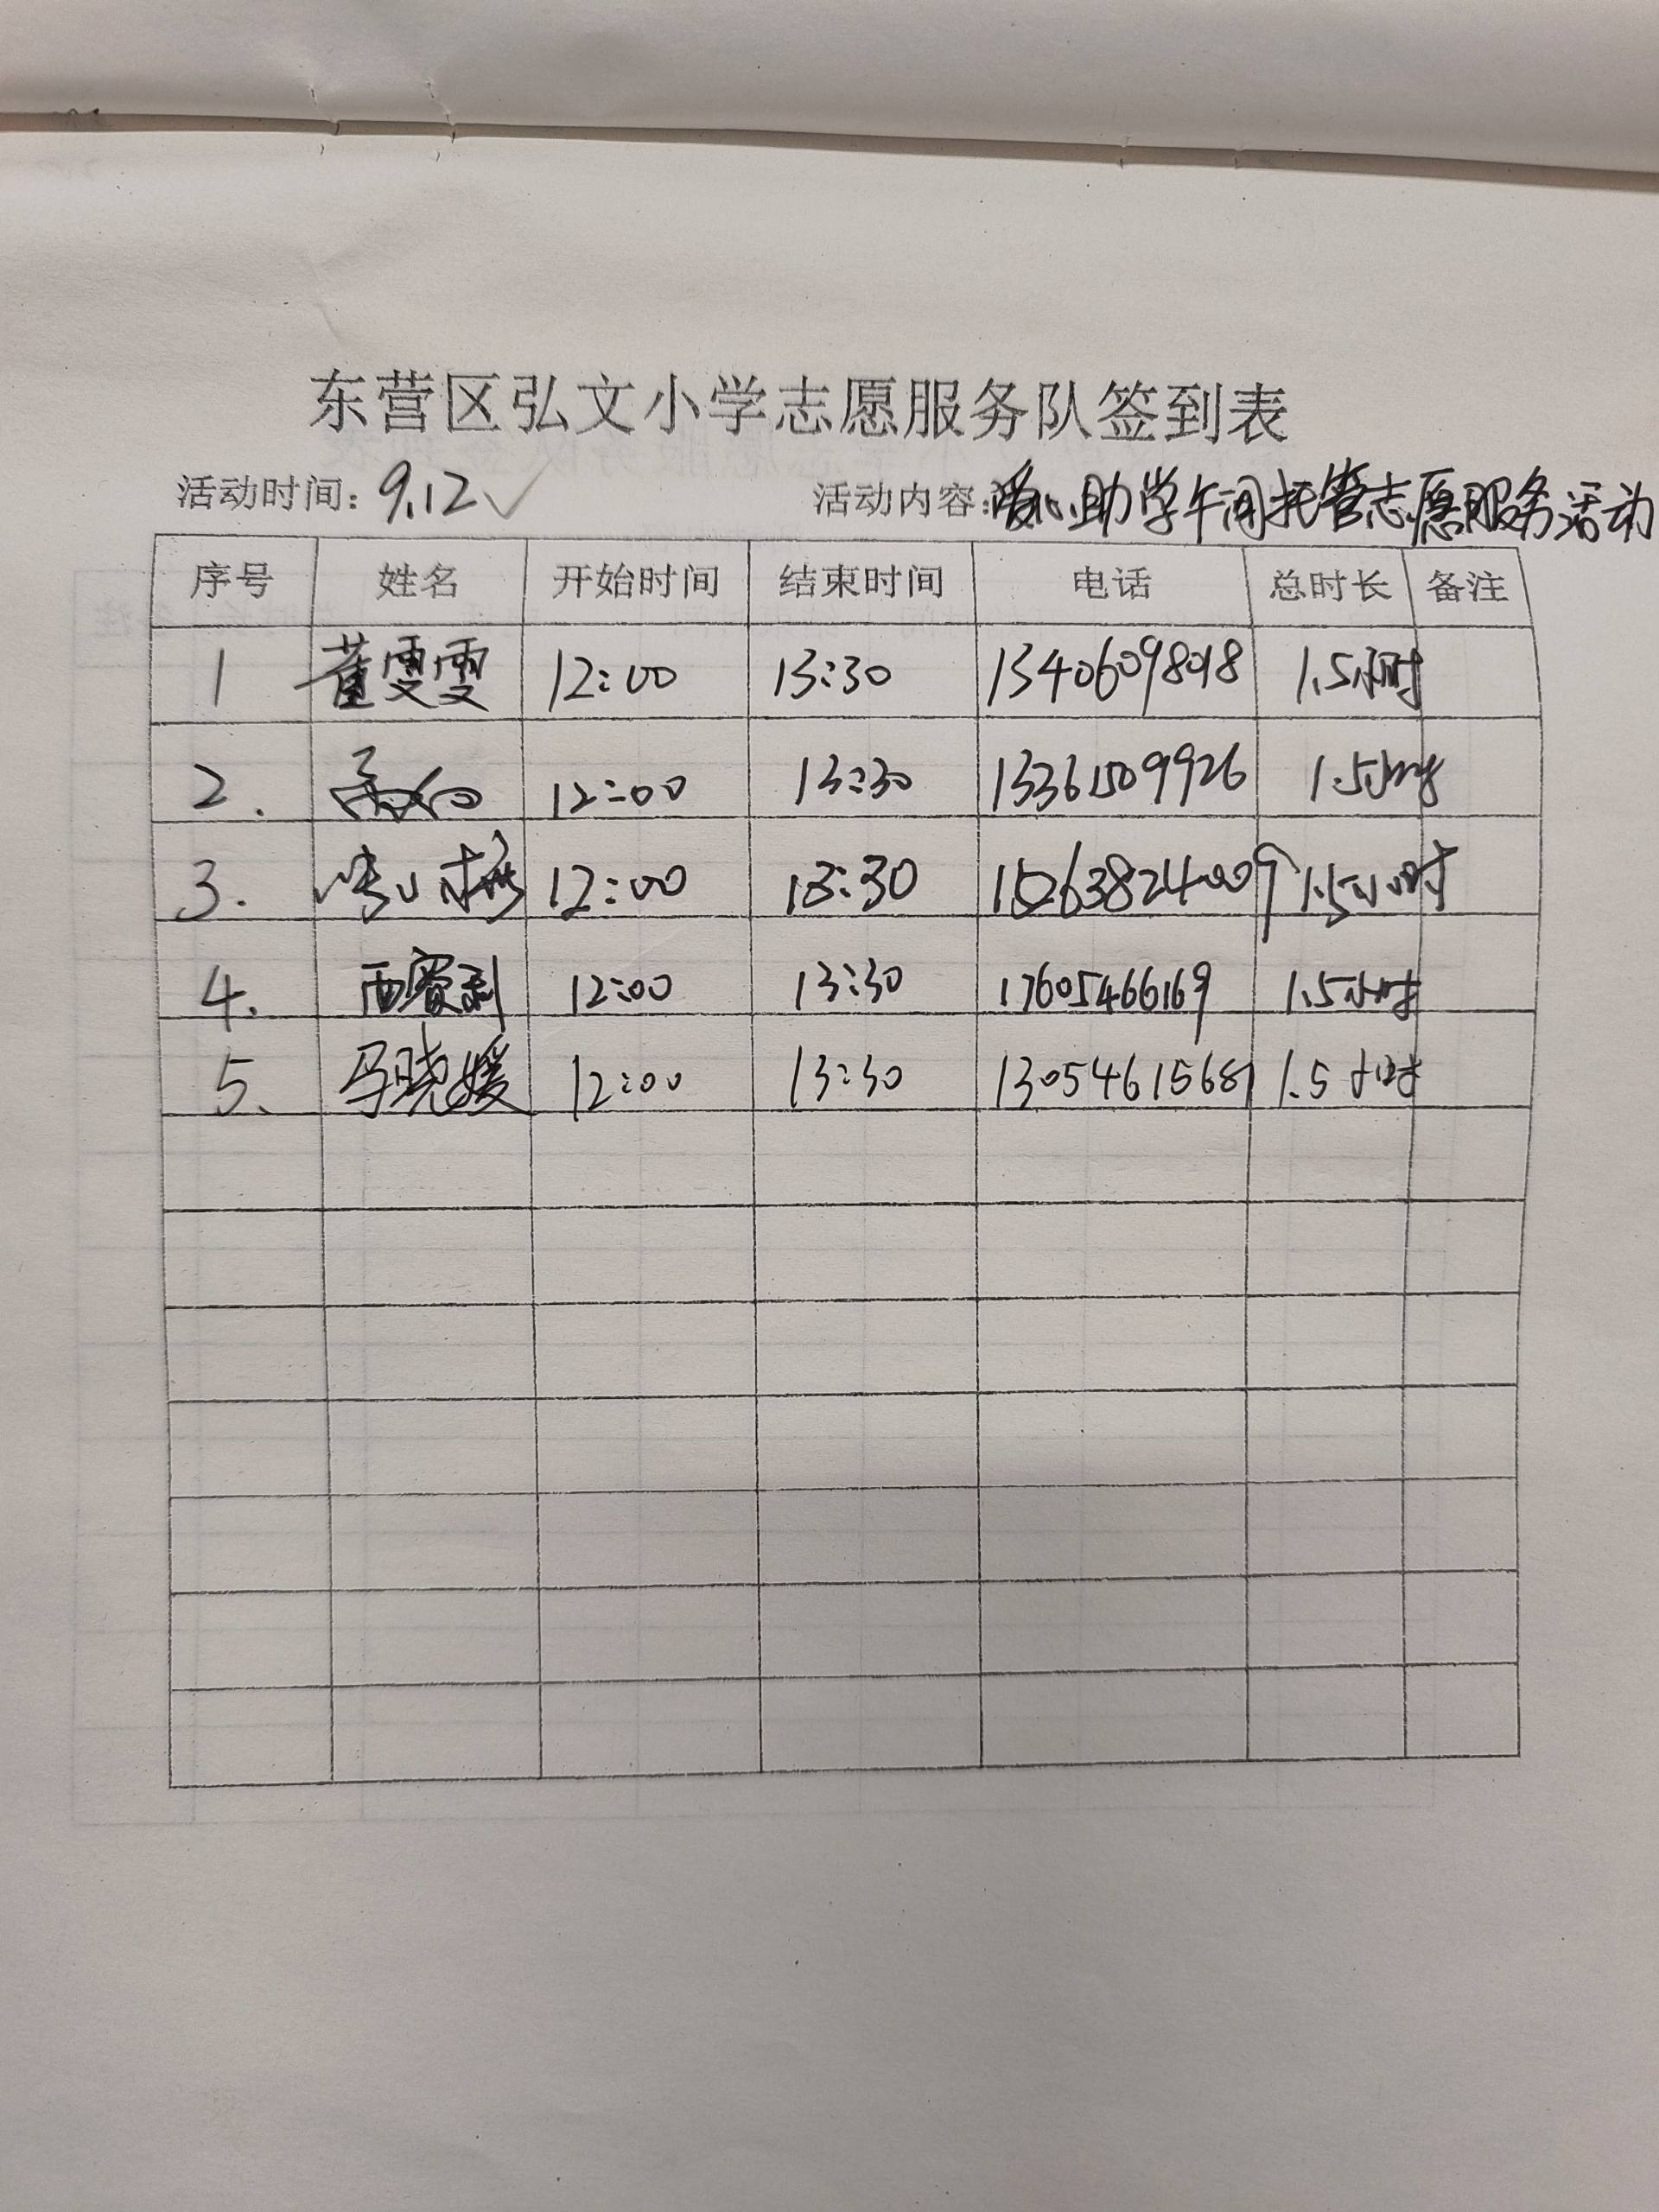 东营区弘文小学志愿服务队签到表
活动时间: 9.12√ 活动内容: 爱心助学午间托管志愿服务活动
序号 姓名 开始时间 结束时间 电话 总时长 备注
1 董雯雯 12:00 13:30 13406098018 1.5小时
2. 12:00 13:30 13361509926 1.5小时
3. 12:00 13:30 15263824009 1.5小时
4. 西宝利 12:00 13:30 17605466169 1.5小时
5. 马晓媛 12:00 13:30 13054615681 1.5小时